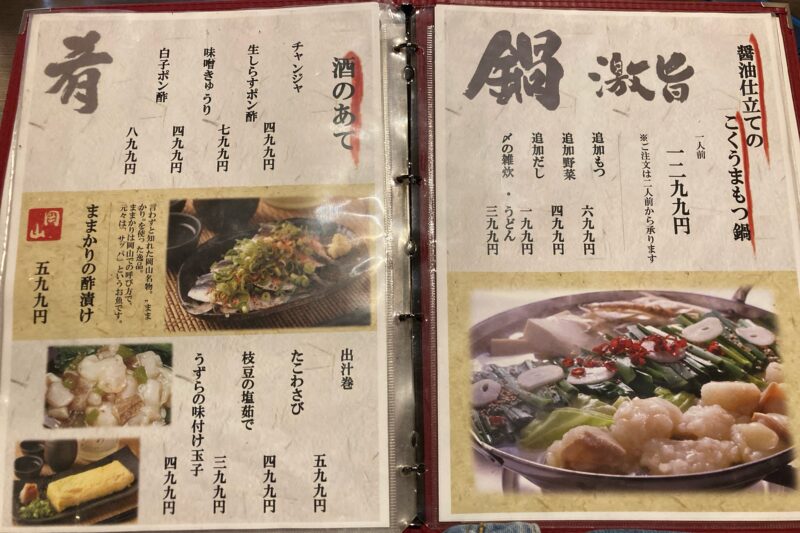 醤油仕立ての
こくうまもつ鍋
激旨
鍋
一人前
一二九九円
※ご注文は二人前から承ります
追加もつ
六九九円
追加野菜
四九九円
追加だし
一九九円
〆の雑炊・うどん
三九九円
酒のあて
肴
チャンジャ
四九九円
生しらすポン酢
七九九円
味噌きゅうり
四九九円
白子ポン酢
八九九円
言わずと知れた岡山名物。"まま
かり"を使った逸品。
ままかりは岡山での呼び方で、
元々は、「サッパ」というお魚です。
ままかりの酢漬け
五九九円
岡山
出汁巻
五九九円
たこわさび
四九九円
枝豆の塩茹で
三九九円
うずらの味付け玉子
四九九円